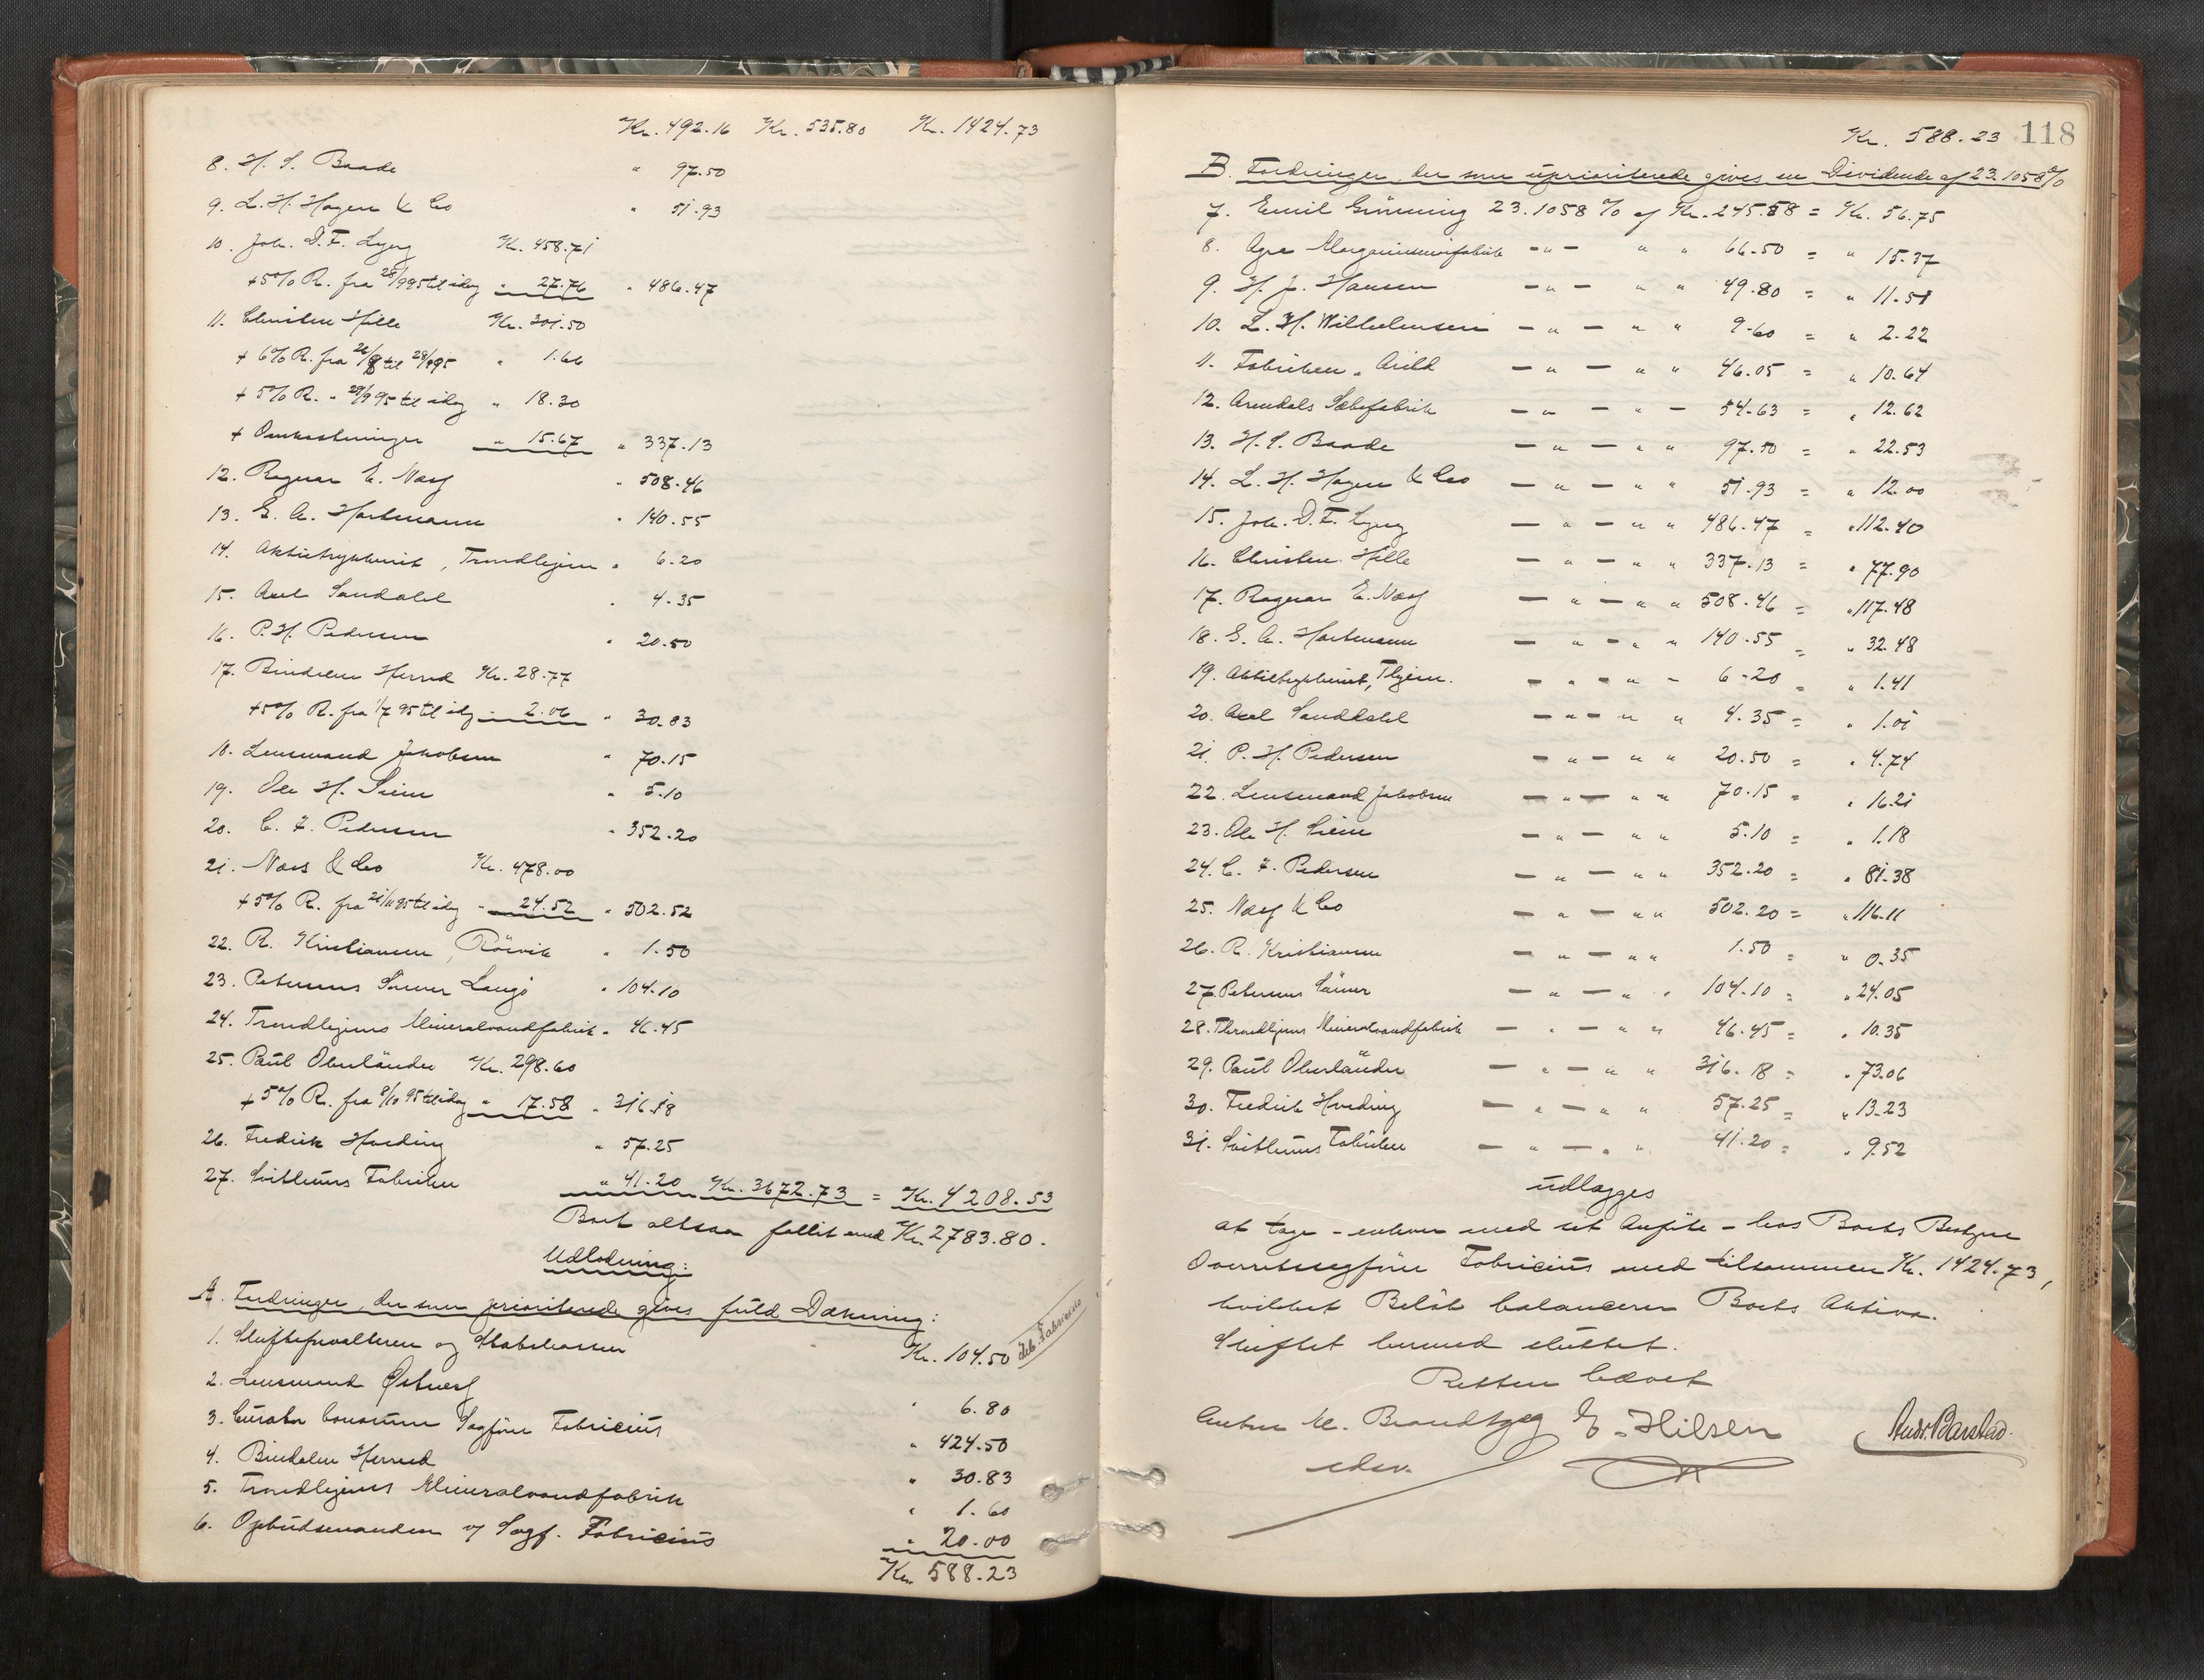 Kr. 492.16 Kr. 535.80 Kr. 1424.73
8. H. S. Baade " 97.50
9. L. H. Hagen & Co " 51.93
10. Joh. D. F. Lyng Kr. 458.71
+ 5% R. fra 28/9 95 til idag " 27.76 " 486.47
11. Christen Hille Kr. 301.50
+ 6% R. fra til 28/9 95 " 1.66
+ 5% R. " 29/9 95 til idag " 18.30
+ Omkostninger " 15.67 " 337.13
12. Ragnar E. Næss " 508.46
13. E. A. Hartmann " 140.55
14. Aktietrykkeriet, Trondhjem " 6.20
15. Axel Sandahl " 4.35
16. P. H. Pedersen " 20.50
17. Bindalen Herred Kr. 28.77
+ 5% R. fra 1/7 95 til idag " 2.06 " 30.83
18. Lensmand Jakobsen " 70.15
19. Ole H. Siem " 5.10
20. C. F. Pedersen " 352.20
21. Næss & Co Kr. 478.00
+ 5% R. fra 21/11 95 til idag " 24.52 " 502.52
22. R. Kristiansen, Rörvik " 1.50
23. Petersens Sönner Langö " 104.10
24. Trondhjems Mineralvandfabrik " 46.45
25. Paul Oberländer Kr. 298.60
+ 5% R. fra 8/10 95 til idag " 17.58 " 316.18
26. Fredrik Hveding " 57.25
27. Svithuns Fabriken " 41.20 Kr. 3672.73 = Kr. 4208.53
Boet altsaa fallit med Kr. 2783.80.
Udlodning:
A. Fordringer, der som prioriterede gives fuld Dækning:
1. Skifteforvalteren og Statskassen Kr. 104.50
deb. Fabricius
2. Lensmand " 6.80
3. Curator bonorum Sagförer Fabricius " 424.50
4. Bindalen Herred " 30.83
5. Trondhjems Mineralvandfabrik " 1.60
6. Opbudsmanden v/ Sagf. Fabricius " 20.00
Kr. 588.23
118
Kr. 588.23
B. Fordringer, der som uprioriterede gives en Dividende af 23.1058%
7. Emil Grönning 23.1058 % af Kr. 245.58 = Kr. 56.75
8. Agra Margarinsmörfabrik - " - " " 66.50 = " 15.37
9. H. J. Hansen - " - " " 49.80 = " 11.51
10. L. H. Wilhelmsen - " - " " 9.60 = " 2.22
11. Fabriken " Arild - " - " " 46.05 = " 10.64
12. Arendals Sæbefabrik - " - " - 54.63 = " 12.62
13. H. S. Baade - " - " " 97.50 = " 22.53
14. L. H. Hagen & Co - " - " " 51.93 = " 12.00
15. Joh. D. F. Lyng - " - " " 486.47 = " 112.40
16. Christen Hille - " - " " 337.13 = " 77.90
17. Ragnar E. Næss - " - " " 508.46 = " 117.48
18. E. A. Hartmann - " - " " 140.55 = " 32.48
19. Aktietrykkeriet, Thjem. - " - " - 6.20 = " 1.41
20. Axel Sandahl - " - " " 4.35 = " 1.01
21. P. H. Pedersen - " - " " 20.50 = " 4.74
22. Lensmand Jakobsen - " - " " 70.15 = " 16.21
23. Ole H. Siem - " - " " 5.10 = " 1.18
24. C. F. Pedersen - " - " " 352.20 = " 81.38
25. Næss & Co - " - " " 502.20 = " 116.11
26. R. Kristiansen - " - " " 1.50 = " 0.35
27. Petersens Sönner - " - " " 104.10 = " 24.05
28. Throndhjems Mineralvandfabrik - " - " " 46.45 = " 10.35
29. Paul Oberländer - " - " " 316.18 = " 73.06
30. Fredrik Hveding - " - " " 57.25 = " 13.23
31. Svithuns Fabriken - " - " " 41.20 = " 9.52
udlægges
at tage - enhver med sit Anförte - hos Boets Bestyrer
Overretssagförer Fabricius med tilsammen Kr. 1424.73,
hvilket Belöb balancerer Boets Aktiva.
Skiftet hermed sluttet.
Retten hævet
Anton M. Brandtzæg E. Hilsen Andr. Barstad.
edsv.